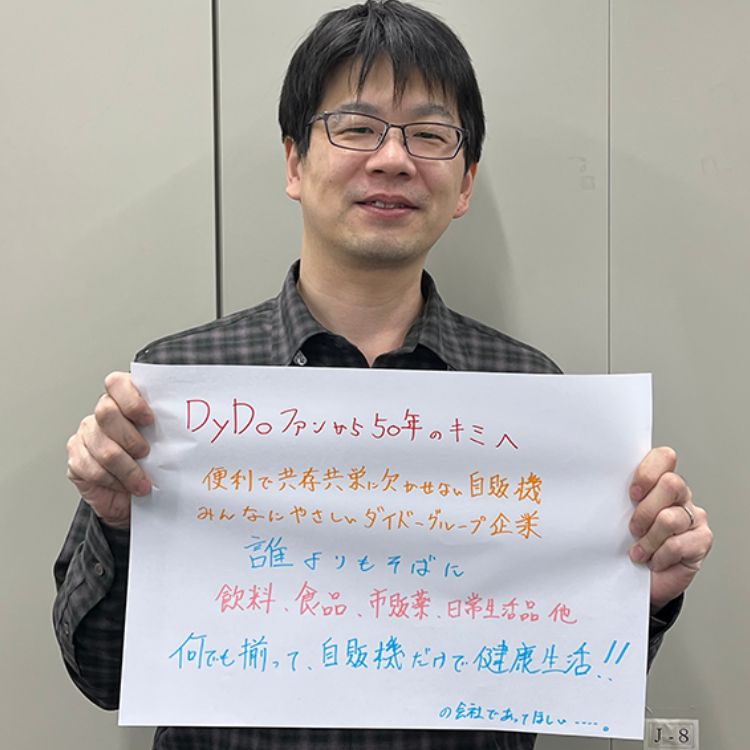 DyDoファンから50年のキミへ
便利で共存共栄に欠かせない自販機
みんなにやさしいダイドーグループ企業
誰よりもそばに
飲料、食品、市販薬、日常生活品 他
何でも揃って、自販機だけで健康生活!!
の会社であってほしい……。
J-8